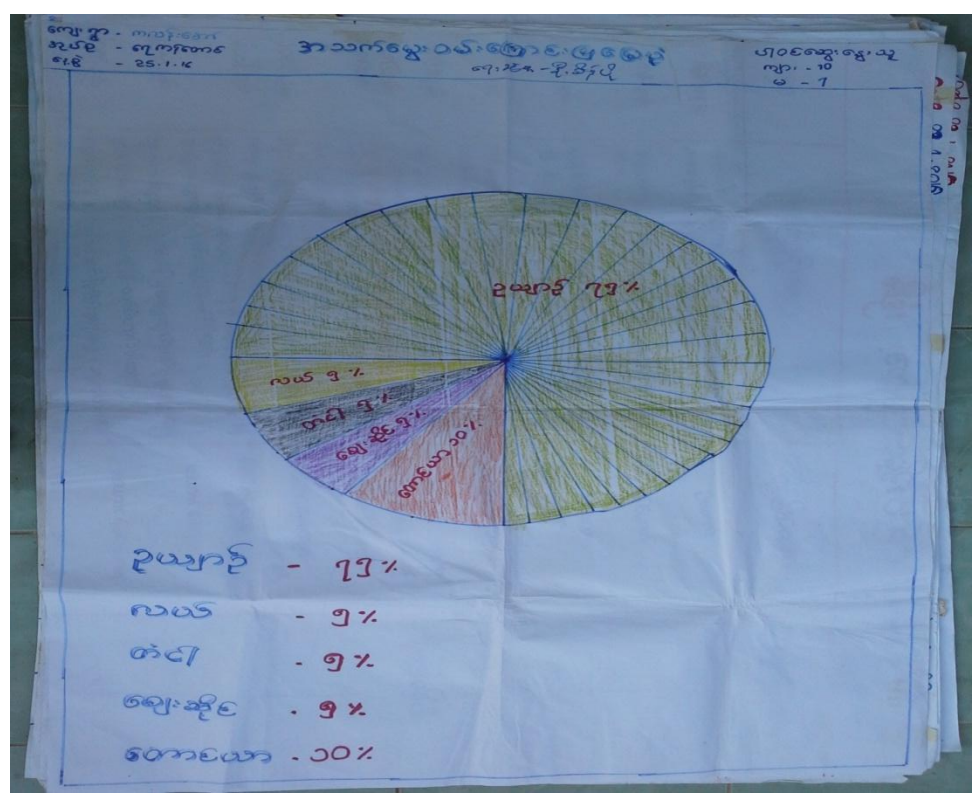 ကျေးရွာ -
အုပ်စု -
နေ့စွဲ - 25.1.16
အသက်မွေးဝမ်းကြောင်းပြမြေပုံ
ပါဝင်ဆွေးနွေးသူ
ကျား - 10
မ - 7
ဥယျာဉ် ၇၅%
လယ် ၅%
တံငါ ၅%
ဈေးဆိုင် ၅%
တောင်ယာ ၁၀%
ဥယျာဉ် - ၇၅%
လယ် - ၅%
တံငါ - ၅%
ဈေးဆိုင် - ၅%
တောင်ယာ - ၁၀%